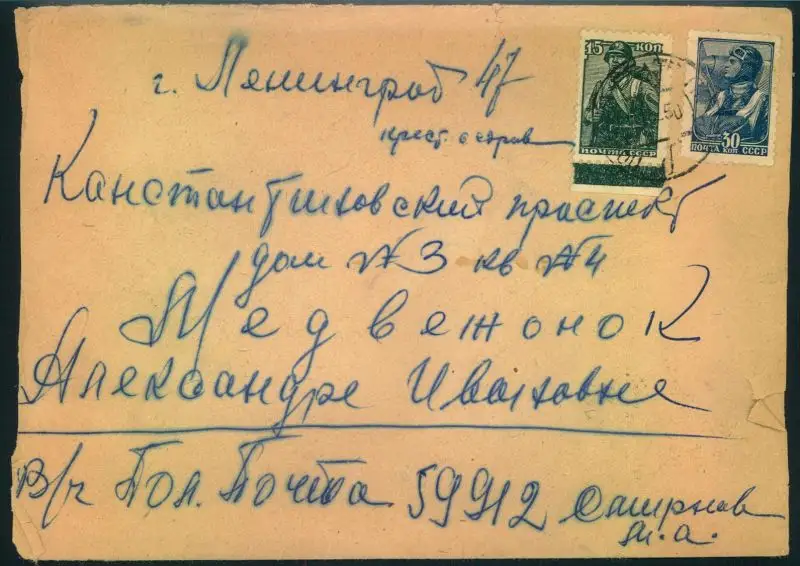 15 КОП
ПОЧТА СССР
30
ПОЧТА КОП СССР
50
г. Ленинград 47
крест. остров
Канстантиновский праспект
дом №3 кв №4
Медвежонок
Александре Ивановне
В/ч Пол. Почта 59912 Смирнов